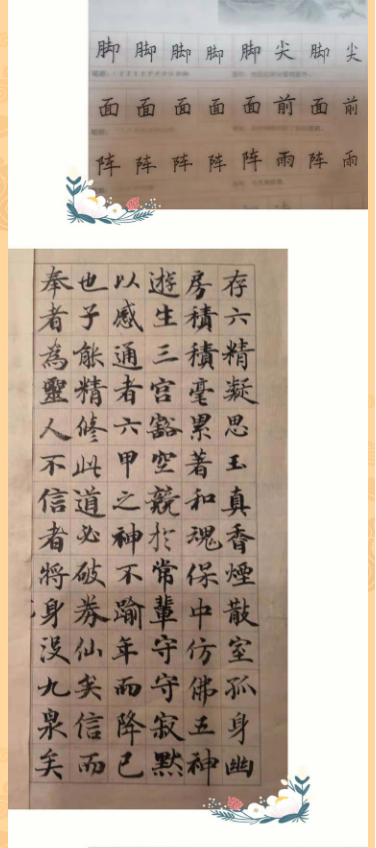 脚 脚 脚 脚 脚 尖 脚 尖
面 面 面 面 面 前 面 前
阵 阵 阵 阵 阵 雨 阵 雨
存六精凝思玉真香煙散室孤身幽
房積積毫累著和魂保中仿佛五神
遊生三宫豁空競於常輩守守寂默
以感通者六甲之神不踰年而降已
也子能精修此道必破券仙矣信而
奉者為靈人不信者將身没九泉矣